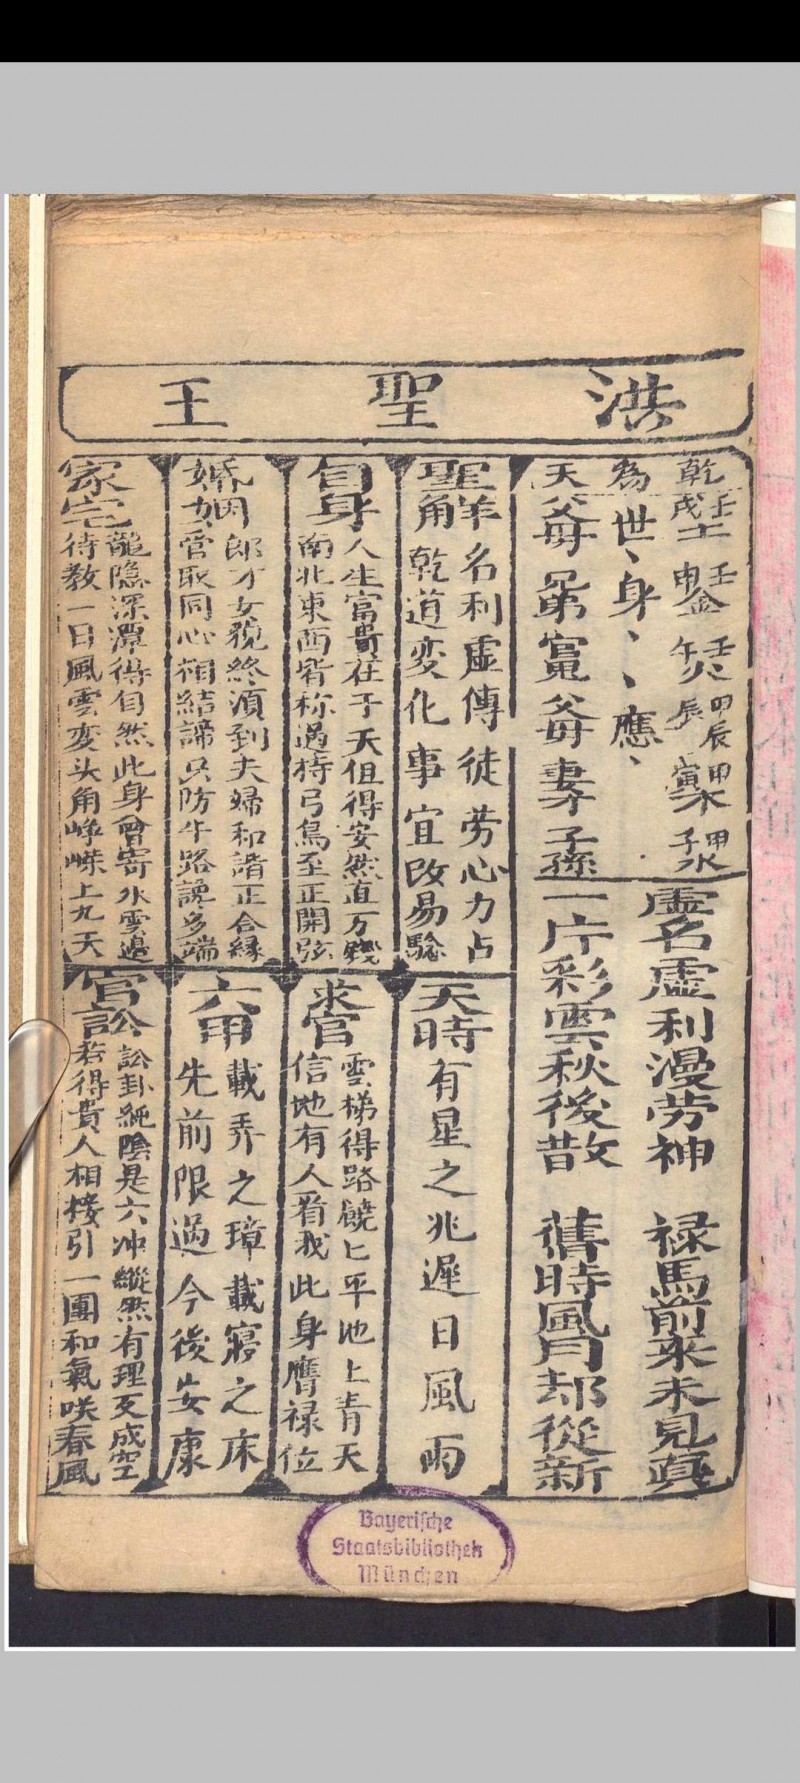 洪聖王
乾 壬戌土 壬申金 壬午火 甲辰 甲寅木 甲子水
為 世、身、、應、
天 父母 兄弟 官鬼 父母 妻才 子孫
虛名虛利漫劳神 禄馬前来未見真
一片彩雲秋後散 舊時風月却從新
聖解
名利虛傳徒劳心力占
乾道变化事宜改易騐
天時
有星之兆遲日風雨
自身
人生富貴在于天但得安然直万錢
南北東西皆称過持弓鳥至正開弦
求官
雲梯得路饒匕平地上青天
信地有人看我此身膺禄位
婚姻
郎才女貌終須到夫婦和諧正合緣
管取同心相結諦只防牛路讒多端
六甲
載弄之璋載寢之床
先前限過今後安康
家宅
龍隐深潭得自然此身曾寄水雲邊
待教一日風雲变头角崢嶸上九天
官訟
訟卦純陰是六冲縱然有理反成空
若得貴人相接引一團和氣咲春風
Bayerische
Staatsbibliothek
München